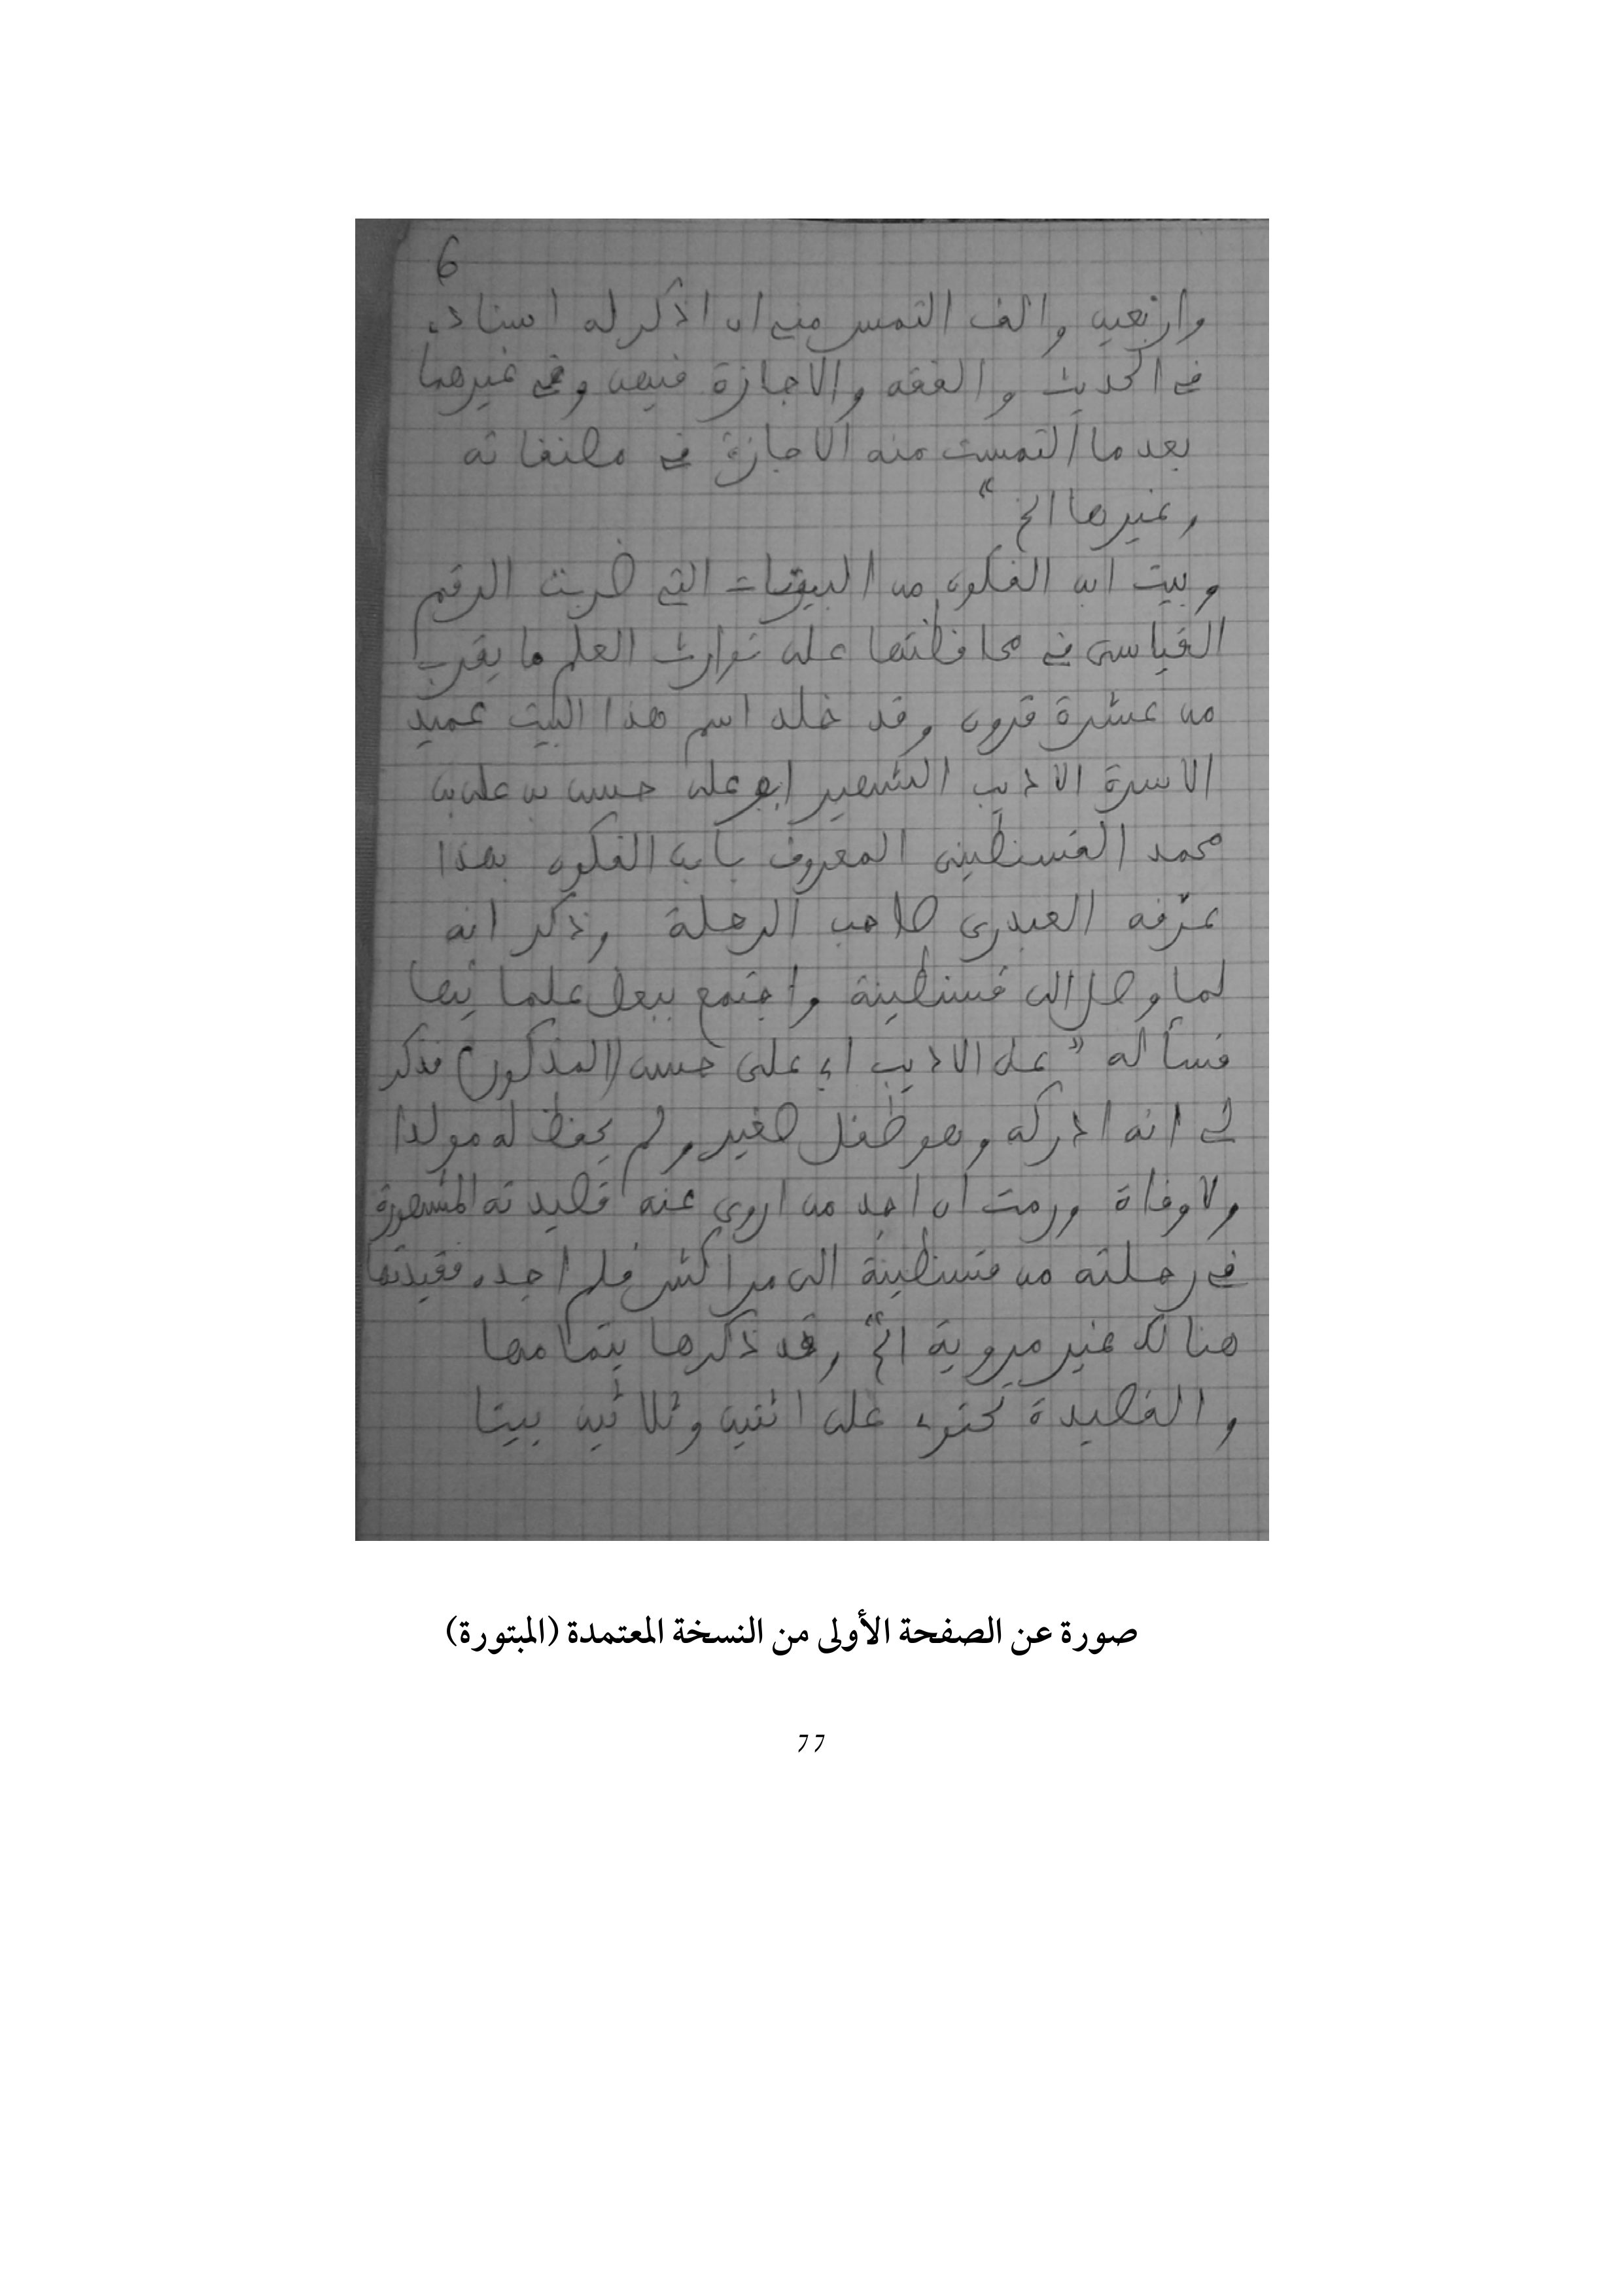 6
واربعين والف التمس مني ان اذكر له اسناده
في الحديث والفقه والاجازة فيهن وفي غيرهما
بعد ما التمست منه الاجازة في مصنفاته
وغيرها الخ"
وبيت ابن الفكون من البيوتات التي ضربت الرقم
القياسى في محافظتها على توارث العلم ما يقرب
من عشرة قرون وقد خلد اسم هذا البيت عميد
الاسرة الاديب الشهير ابو على حسن بن على بن
محمد القسنطينى المعروف بابن الفكون بهذا
عرّفه العبدرى صاحب الرحلة وذكر انه
لما وصل الى قسنطينة واجتمع ببعض علمائها
فسأله " عن الاديب ابي على حسن (المذكور) فذكر
لي انه ادركه وهو طفل صغير ولم يحفظ له مولدا
ولا وفاة ورمت ان اجد من اروي عنه قصيدته المشهورة
في رحلته من قسنطينة الى مراكش فلم اجده فقيدتها
هنالك غير مروية الخ" وقد ذكرها بتمامها
والقصيدة تحتوي على اثنين وثلاثين بيتا
صورة عن الصفحة الأولى من النسخة المعتمدة (المبتورة)
77